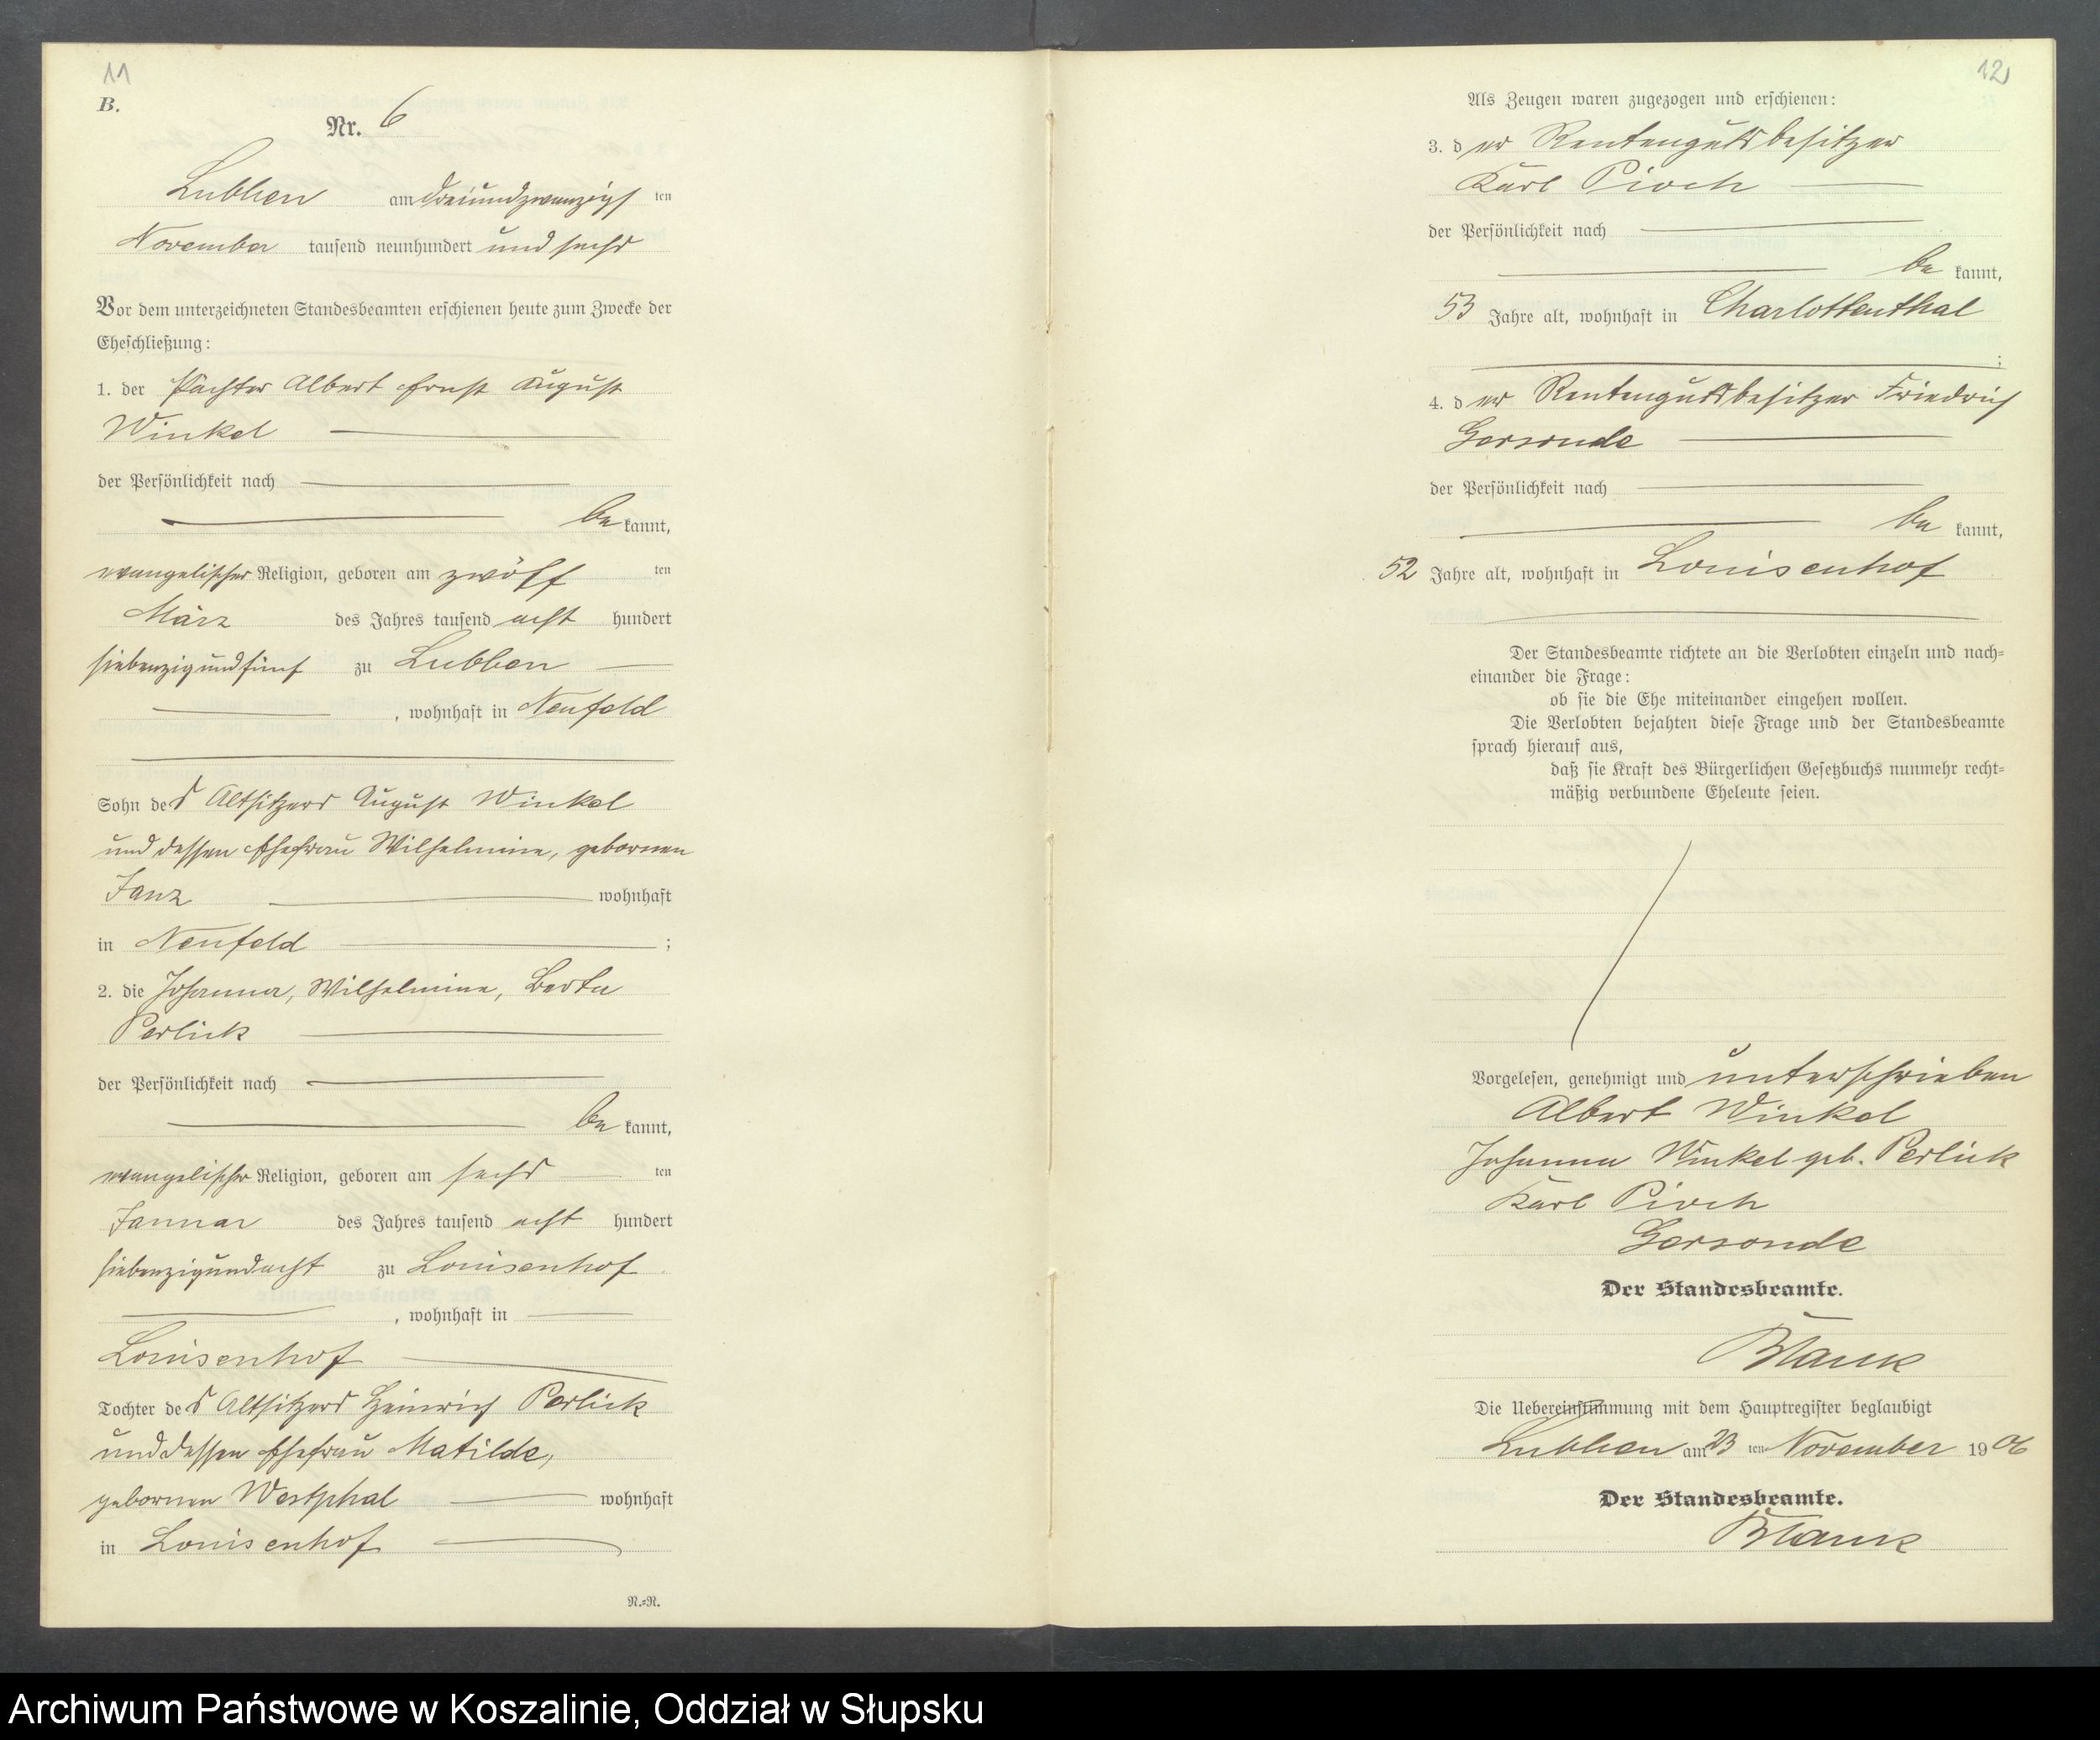 11
B.
Nr. 6
Lubben am dreiundzwanzigs ten
November tausend neunhundert und sechs
Vor dem unterzeichneten Standesbeamten erschienen heute zum Zwecke der
Eheschließung:
1. der Pächter Albert Ernst August
Winkel
der Persönlichkeit nach
be kannt,
evangelischer Religion, geboren am zwölf ten
März des Jahres tausend acht hundert
siebenzigundfünf zu Lubben
, wohnhaft in Neufeld
Sohn des Altsitzers August Winkel
und dessen Ehefrau Wilhelmine, gebornen
Janz wohnhaft
in Neufeld ;
2. die Johanna, Wilhelmine, Berta
Perlick
der Persönlichkeit nach
be kannt,
evangelischer Religion, geboren am sechs ten
Januar des Jahres tausend acht hundert
siebenzigundacht zu Louisenhof
, wohnhaft in
Louisenhof
Tochter des Altsitzers Heinrich Perlick
und dessen Ehefrau Matilde,
gebornen Westphal wohnhaft
in Louisenhof
N.=N.
12
Als Zeugen waren zugezogen und erschienen:
3. der Rentengutsbesitzer
Karl Pioch
der Persönlichkeit nach
be kannt,
53 Jahre alt, wohnhaft in Charlottenthal
;
4. der Rentengutsbesitzer Friedrich
Gersonde
der Persönlichkeit nach
be kannt,
52 Jahre alt, wohnhaft in Louisenhof
Der Standesbeamte richtete an die Verlobten einzeln und nach=
einander die Frage:
ob sie die Ehe miteinander eingehen wollen.
Die Verlobten bejahten diese Frage und der Standesbeamte
sprach hierauf aus,
daß sie Kraft des Bürgerlichen Gesetzbuchs nunmehr recht=
mäßig verbundene Eheleute seien.
Vorgelesen, genehmigt und unterschrieben
Albert Winkel
Johanna Winkel geb. Perlick
Karl Pioch
Gersonde
Der Standesbeamte.
Blank
Die Uebereinstimmung mit dem Hauptregister beglaubigt
Lubben am 23 ten November 1906
Der Standesbeamte.
Blank
Archiwum Państwowe w Koszalinie, Oddział w Słupsku